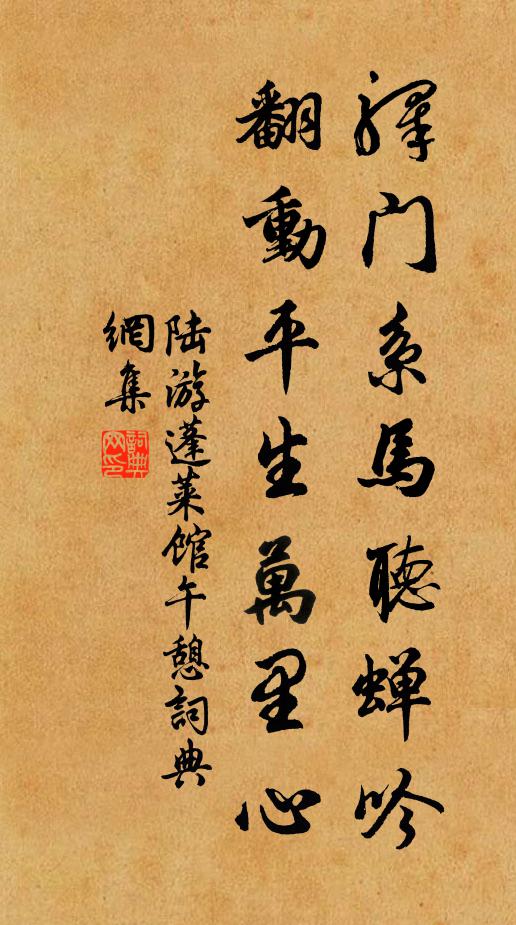 驛門系馬聽蟬吟
翻動平生萬里心
陆游蓬萊馆午憩詞典
網集
詞典
网印